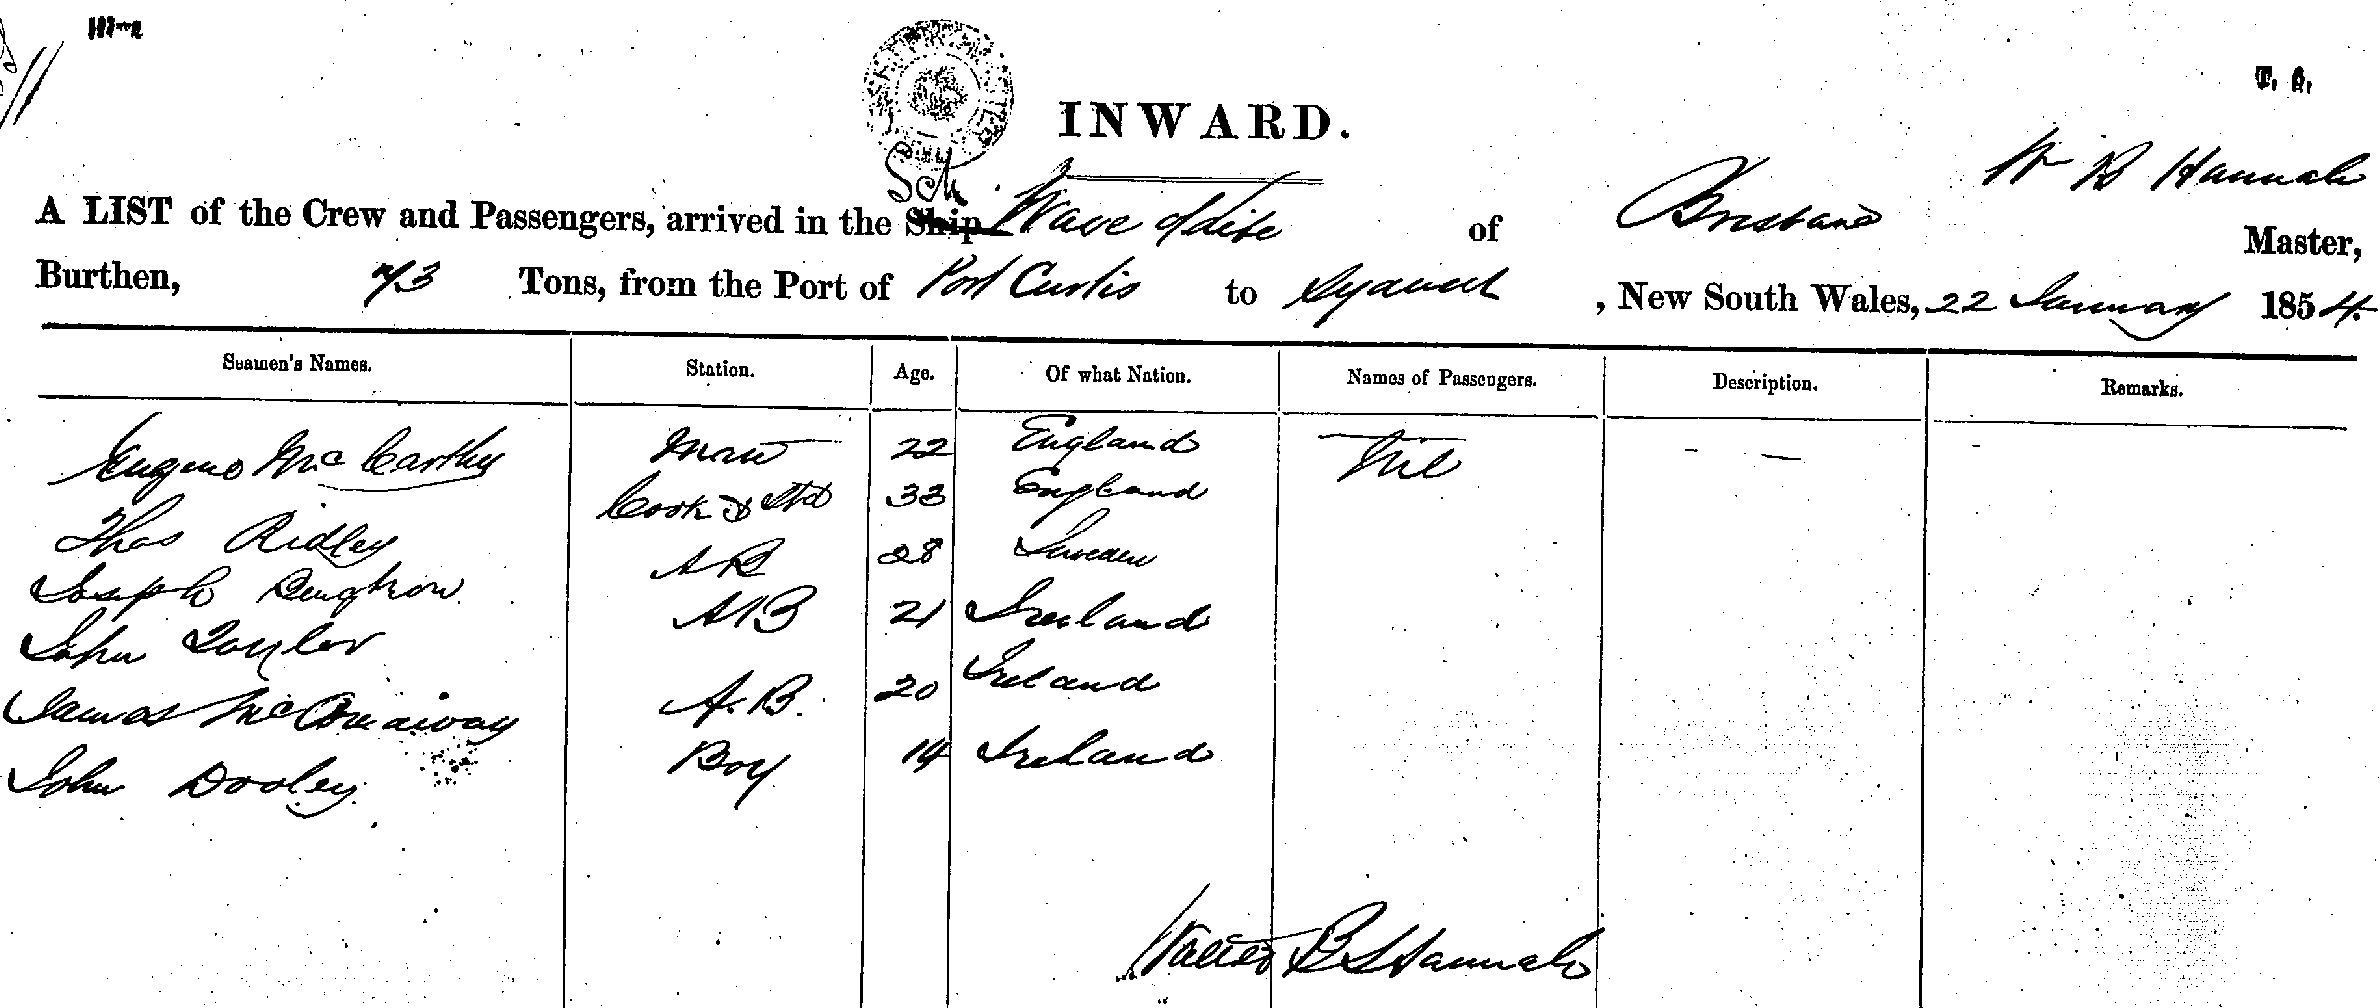 INWARD.
T. B.
W B Hannah
Sch
A LIST of the Crew and Passengers, arrived in the Ship Wave of Life of Brisbane Master,
Burthen, 73 Tons, from the Port of Port Curtis to Sydney, New South Wales, 22 January 1854.
Seamen's Names. Station. Age. Of what Nation. Names of Passengers. Description. Remarks.
Eugene McCarthy Mate 22 England Nil - -
Thos Ridley Cook & Std 33 England
Joseph AB 28 Sweden
John Taylor AB 21 Ireland
James A.B. 20 Ireland
John Dooley Boy 14 Ireland
Walter B Hannah